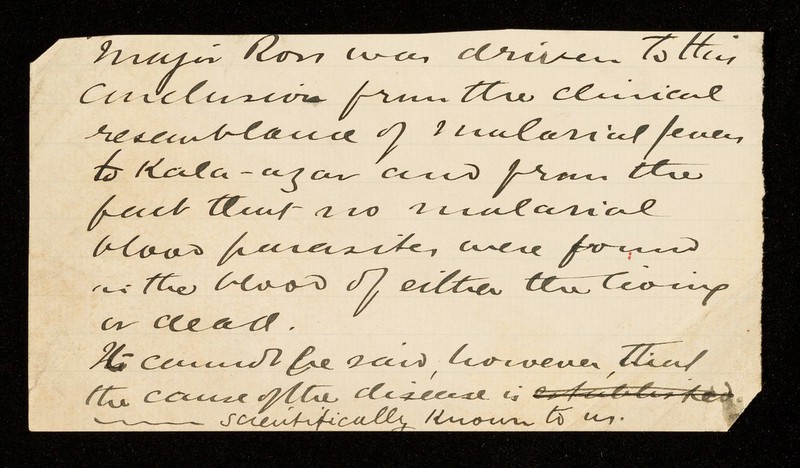 Major Ross was driven to this
conclusion from the clinical
resemblance of malarial fever
to Kala-azar and from the
fact that no malarial
blood parasites were found
in the blood of either the living
or dead.
It cannot be said, however, that
the cause of the disease is established.
scientifically known to us.